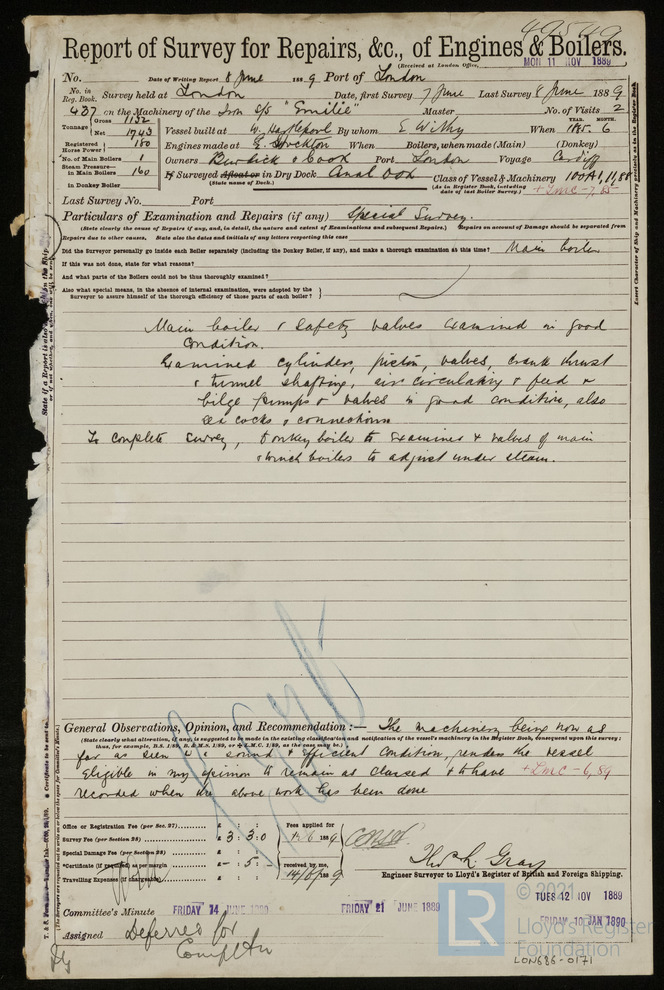 49549
Report of Survey for Repairs, &c., of Engines & Boilers.
(Received at London Office, MON 11 NOV 1889
No. Date of Writing Report 8 June 1889 Port of London
No. in Reg. Book. Survey held at London Date, first Survey 7 June Last Survey 8 June 1889
437 on the Machinery of the Iron S/S "Emilie" Master No. of Visits 2
Tonnage Gross 1132 Net 1743 Vessel built at W. Hartlepool By whom E Withy When YEAR. 1885. MONTH. 6
Registered Horse Power 180 Engines made at Stockton When Boilers, when made (Main) (Donkey)
No. of Main Boilers 1 Owners Burdick & Cook Port London Voyage Cardiff
Steam Pressure— in Main Boilers 160 If Surveyed Afloat or in Dry Dock Canal Dock Class of Vessel & Machinery 100A1, 11,88
in Donkey Boiler (State name of Dock.) (As in Register Book, including date of last Boiler Survey.) + LMC - 7, 85
Last Survey No. Port
Particulars of Examination and Repairs (if any) Special Survey.
(State clearly the cause of Repairs if any, and, in detail, the nature and extent of Examinations and subsequent Repairs.) Repairs on account of Damage should be separated from
Repairs due to other causes. State also the dates and initials of any letters respecting this case
Did the Surveyor personally go inside each Boiler separately (including the Donkey Boiler, if any), and make a thorough examination at this time? Main boiler
If this was not done, state for what reasons?
And what parts of the Boilers could not be thus thoroughly examined?
Also what special means, in the absence of internal examination, were adopted by the
Surveyor to assure himself of the thorough efficiency of those parts of each boiler?
Main boiler & safety valves examined in good
condition.
Examined cylinders, piston, valves, crank thrust
& tunnel shafting, air circulating & feed &
bilge pumps & valves in good condition, also
sea cocks & connections
To complete survey, Donkey boiler to examine & valves of main
& winch boilers to adjust under steam.
General Observations, Opinion, and Recommendation :— The machinery being now as
(State clearly what alteration, if any, is suggested to be made in the existing classification and notification of the vessel's machinery in the Register Book, consequent upon this survey;
thus, for example, B.S. 1/89, B. & M.S. 1/89, or + L.M.C. 1/89, as the case may be.)
far as seen in a sound & efficient condition, renders the vessel
eligible in my opinion to remain as classed & to have + LMC - 6, 89
recorded when the above work has been done
Office or Registration Fee (per Sec. 27) £ : : Fees applied for
Survey Fee (per Section 28) £ 3 : 3 : 0 1889
Special Damage Fee (per Section 28) £ : :
Certificate (if required) as per margin £ - : 5 : - received by me,
Travelling Expenses (if chargeable) £ : : 14/6/1889
Thos. L. Gray
Engineer Surveyor to Lloyd's Register of British and Foreign Shipping.
TUES 12 NOV 1889
Committee's Minute FRIDAY 14 JUNE 1889 FRIDAY 21 JUNE 1889 FRIDAY 10 JAN 1890
Assigned Deferred for
Completn
© 2021
LR Lloyd's Register
Foundation
LON686-0171